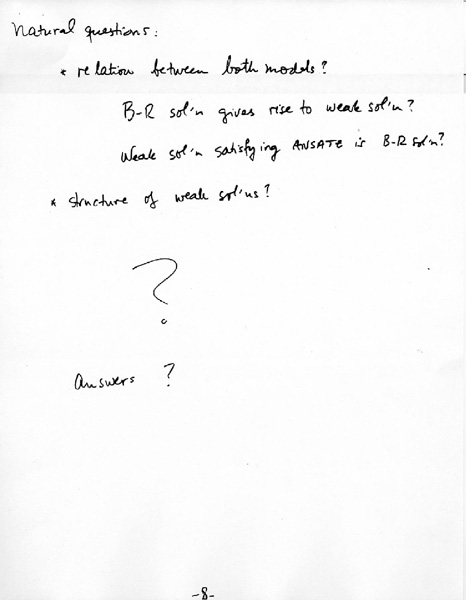 Natural questions:
* relation between both models?
B-R sol'n gives rise to weak sol'n?
Weak sol'n satisfying ANSATE is B-R sol'n?
* structure of weak sol'ns?
?
Answers ?
-8-